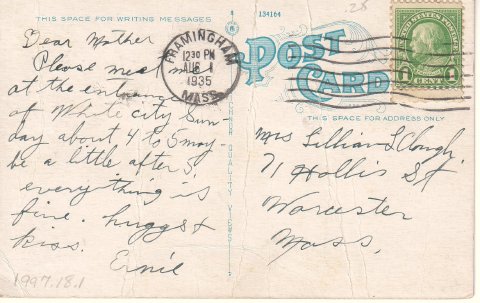 THIS SPACE FOR WRITING MESSAGES
134164
28
Dear Mother
Please meet me
at the entrance
of White city Sun-
day about 4 to 5 may-
be a little after 5,
everything is
fine. huggs &
kiss.
Ernie
1997.18.1
FRAMINGHAM
12 30 PM
AUG 1
1935
MASS.
POST
CARD
1 CENT 1
THIS SPACE FOR ADDRESS ONLY
Mrs Lillian L Clough,
71 Hollis St
Worcester
Mass,